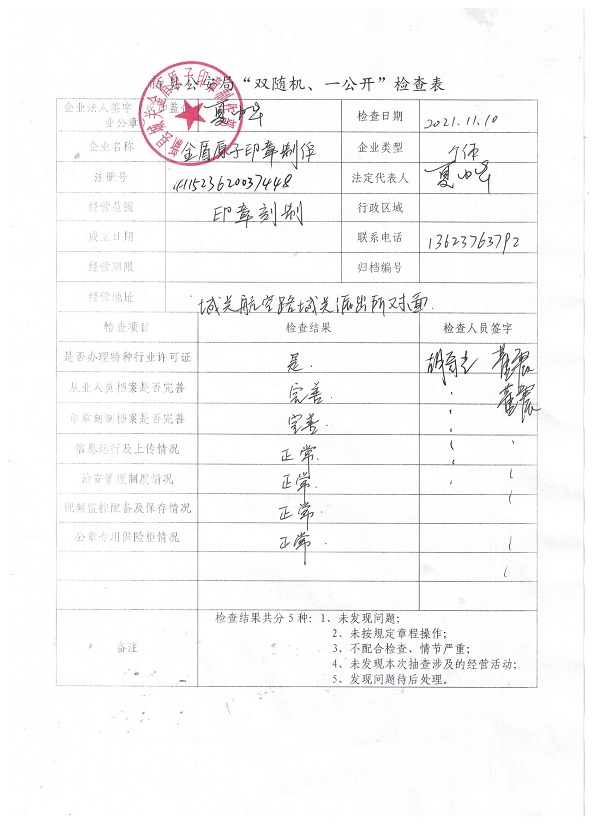 县公安局“双随机、一公开”检查表
企业法人签字 盖企业公章 检查日期 2021.11.10
企业名称 金盾原子印章刻制 企业类型 个体
注册号 法定代表人
经营范围 印章刻制 行政区域
成立日期 联系电话 13623763792
经营期限 归档编号
经营地址 城关航空路城关派出所对面
检查项目 检查结果 检查人员签字
是否办理特种行业许可证 是.
从业人员档案是否完善 完善.
印章刻制档案是否完善 完善.
信息运行及上传情况 正常.
治安管理制度情况 正常.
视频监控配备及保存情况 正常.
公章专用保险柜情况 正常.
备注 检查结果共分5种：1、未发现问题；
2、未按规定章程操作；
3、不配合检查、情节严重；
4、未发现本次抽查涉及的经营活动；
5、发现问题待后处理。